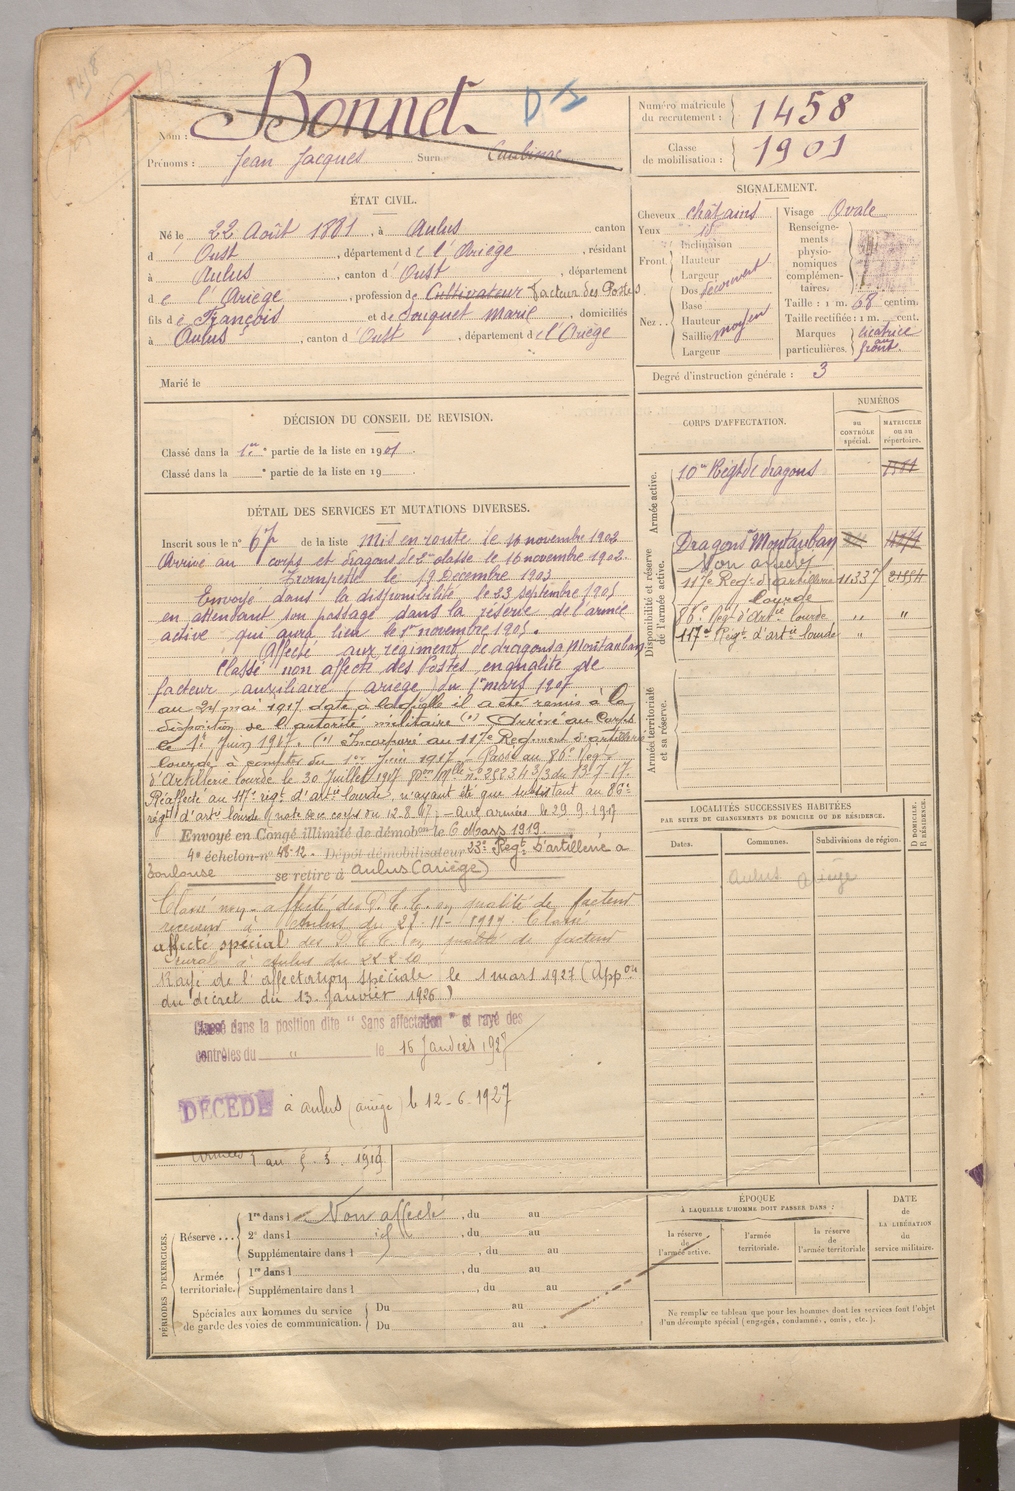 Bonnet
D
Nom :
Prénoms : Jean Jacques Surn
Numéro matricule
du recrutement : 1458
Classe
de mobilisation : 1901
ÉTAT CIVIL.
Né le 22 Août 1881, à Aulus canton
d Oust, département de l'Ariège, résidant
à Aulus, canton d'Oust, département
de l'Ariège, profession de Cultivateur Facteur des Postes
fils de François et de Souquet Marie, domiciliés
à Aulus, canton d'Oust, département de l'Ariège
Marié le
SIGNALEMENT.
Cheveux châtains
Yeux id
Front. Inclinaison
Hauteur
Largeur
Nez.. Dos
Base
Hauteur
Saillie moyen
Largeur
Visage Ovale
Renseigne-
ments
physio-
nomiques
complémen-
taires.
Taille : 1 m. 68 centim.
Taille rectifiée : 1 m. cent.
Marques
particulières. cicatrice
au
front.
Degré d'instruction générale : 3
DÉCISION DU CONSEIL DE REVISION.
Classé dans la 1re partie de la liste en 1901.
Classé dans la partie de la liste en 19
DÉTAIL DES SERVICES ET MUTATIONS DIVERSES.
Inscrit sous le n° 67 de la liste Mis en route le 16 novembre 1902
Arrivé au corps et dragons de 2me classe le 16 novembre 1902.
Trompette le 19 Décembre 1903
Envoyé dans la disponibilité, le 23 septembre 1905
en attendant son passage dans la réserve de l'armée
active qui aura lieu le 1er novembre 1905.
Affecté aux régiment de dragons à Montauban
Classé non affecté des Postes en qualité de
facteur auxiliaire, ariège, du 1er mars 1907
au 24 mai 1917 date à laquelle il a été remis à la
disposition de l'autorité militaire (1) Arrivé au Corps
le 1er Juin 1917. (1) Incorporé au 117e Régiment d'artillerie
lourde à compter du 1er Juin 1917 - Passé au 86e Régt
d'Artillerie lourde le 30 Juillet 1917 du 13.7.17.
Réaffecté au 117e régt d'artie lourde, n'ayant été que subsistant au 86e
régt d'artie lourde (note du corps du 12.8.17) - Aux armées le 29.9.1917
Envoyé en Congé illimité de démobon le 6 Mars 1919.
4e échelon - n° 48-12. Dépôt démobilisateur 23e Régt d'artillerie à
Toulouse se retire à Aulus (Ariège)
Classé non-affecté des P.T.T. en qualité de facteur
receveur à Aulus du 27-11-1917. Classé
affecté spécial des P.T.T. en qualité de facteur
rural à Aulus du 22-2-20
Rayé de l'affectation spéciale le 1 mars 1927 (Appon
du décret du 13 Janvier 1926)
Classé dans la position dite "Sans affectation" et rayé des
contrôles du " le 15 Janvier 1927
DÉCÉDÉ à Aulus (Ariège) le 12-6-1927
1919
CORPS D'AFFECTATION.
NUMÉROS
au
CONTRÔLE
spécial.
MATRICULE
ou au
répertoire.
Armée active.
10me Régt de dragons
Disponibilité et réserve
de l'armée active.
Dragons Montauban
Non affecté
117e Régt d'artillerie 11337 21554
lourde
86e Régt d'Artie lourde " "
117e Régt d'artie lourde "
Armée territoriale
et sa réserve.
LOCALITÉS SUCCESSIVES HABITÉES
PAR SUITE DE CHANGEMENTS DE DOMICILE OU DE RÉSIDENCE.
Dates.
Communes.
Subdivisions de région.
D DOMICILE.
R RÉSIDENCE.
Aulus Ariège
PÉRIODES D'EXERCICES.
Réserve... 1re dans l Non affecté, du au
2e dans l id, du au
Supplémentaire dans l, du au
Armée
territoriale. 1re dans l, du au
Supplémentaire dans l, du au
Spéciales aux hommes du service
de garde des voies de communication. Du au
Du au
ÉPOQUE
À LAQUELLE L'HOMME DOIT PASSER DANS :
la réserve
de
l'armée active.
l'armée
territoriale.
la réserve
de
l'armée territoriale
DATE
de
LA LIBÉRATION
du
service militaire.
Ne remplir ce tableau que pour les hommes dont les services font l'objet
d'un décompte spécial (engagés, condamnés, omis, etc.).